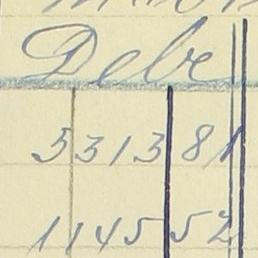 Debe
5313 81
1145 52